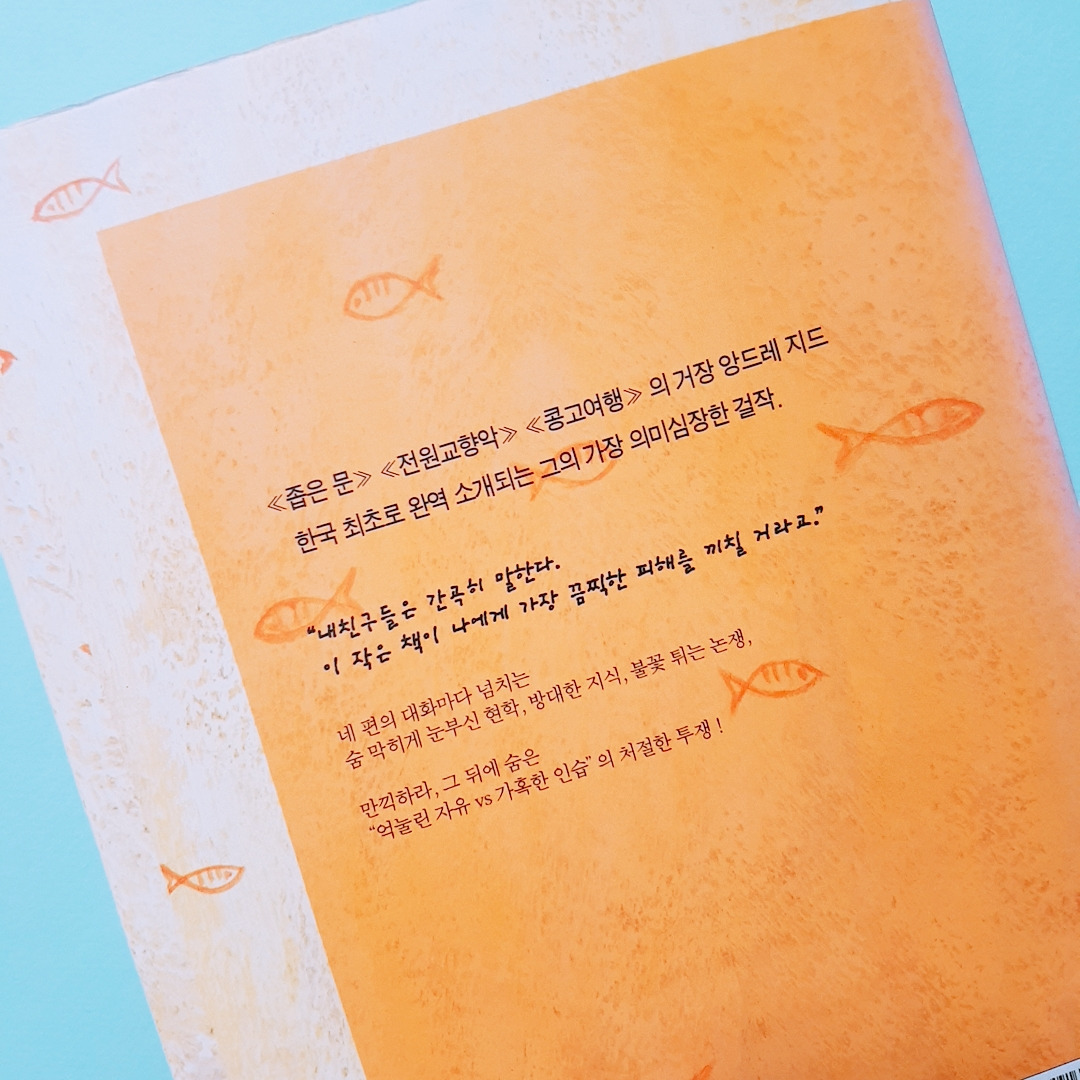 《좁은 문》 《전원교향악》 《콩고여행》 의 거장 앙드레 지드
한국 최초로 완역 소개되는 그의 가장 의미심장한 걸작.
“내친구들은 간곡히 말한다.
이 작은 책이 나에게 가장 끔찍한 피해를 끼칠 거라고.”
네 편의 대화마다 넘치는
숨 막히게 눈부신 현학, 방대한 지식, 불꽃 튀는 논쟁,
만끽하라, 그 뒤에 숨은
“억눌린 자유 vs 가혹한 인습” 의 처절한 투쟁 !